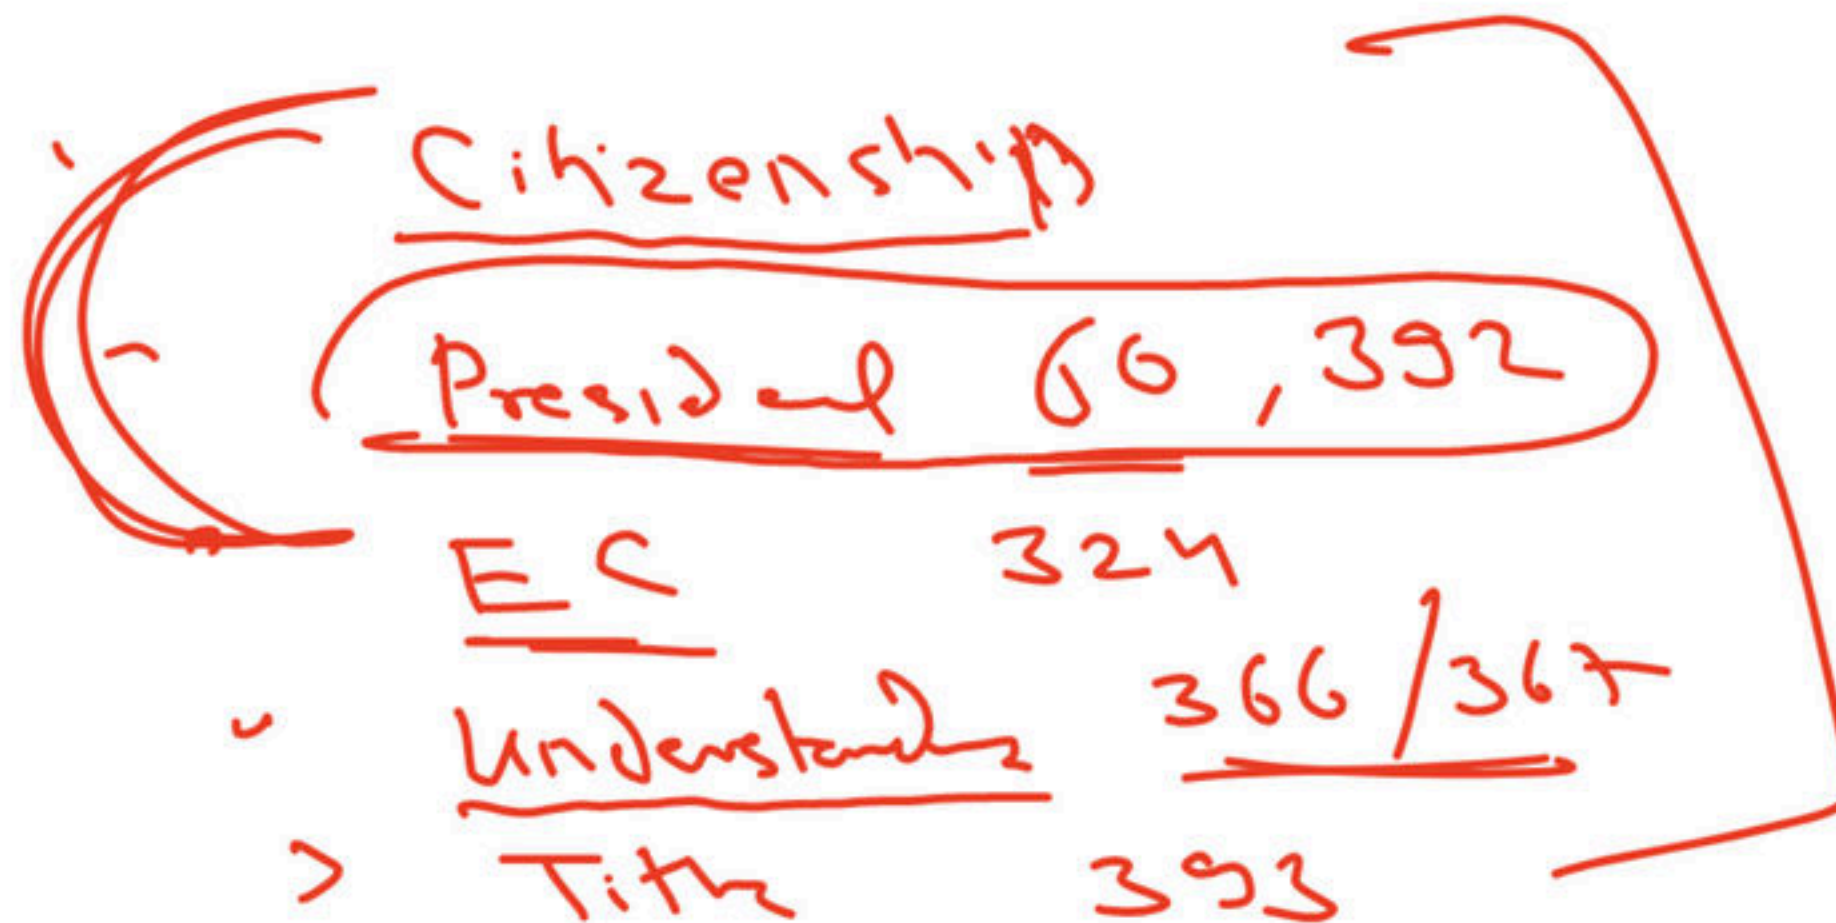 Citizenship
President 60, 392
EC 324
Understanding 366/367
Title 393